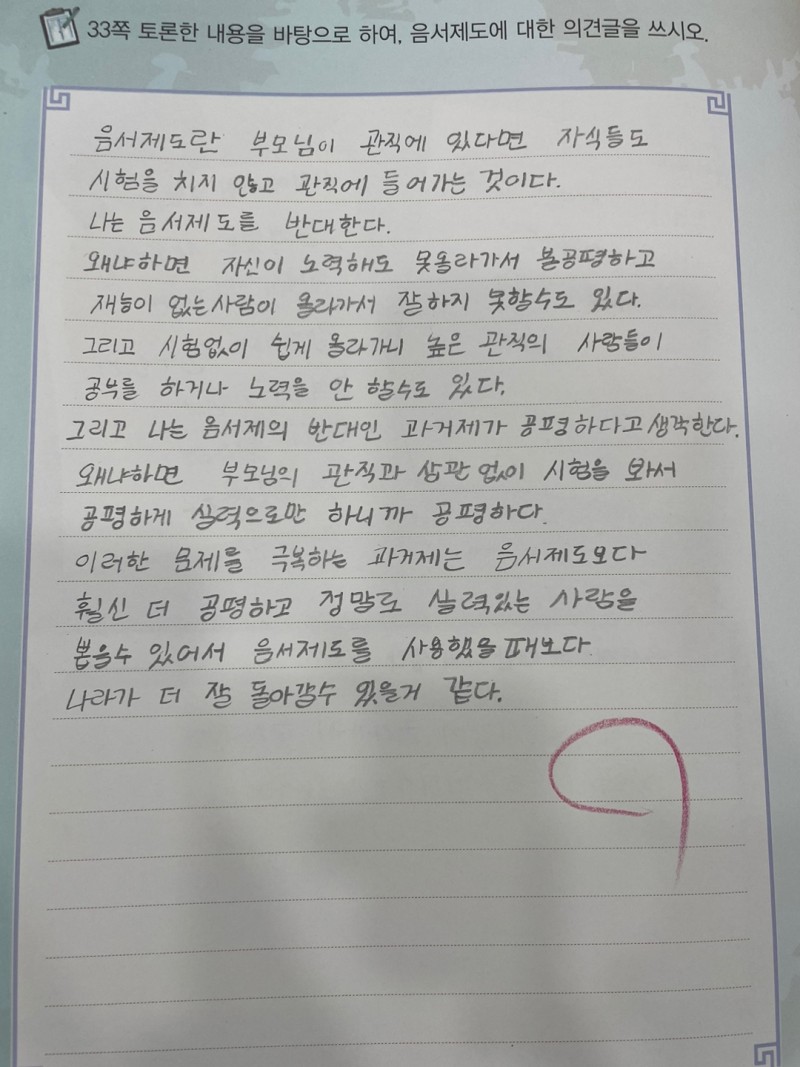 33쪽 토론한 내용을 바탕으로 하여, 음서제도에 대한 의견글을 쓰시오.
음서제도란 부모님이 관직에 있다면 자식들도
시험을 치지 않고 관직에 들어가는 것이다.
나는 음서제도를 반대한다.
왜냐하면 자신이 노력해도 못올라가서 불공평하고
재능이 없는사람이 올라가서 잘하지 못할수도 있다.
그리고 시험없이 쉽게 올라가니 높은 관직의 사람들이
공부를 하거나 노력을 안 할수도 있다.
그리고 나는 음서제의 반대인 과거제가 공평하다고생각한다.
왜냐하면 부모님의 관직과 상관 없이 시험을 봐서
공평하게 실력으로만 하니까 공평하다.
이러한 문제를 극복하는 과거제는 음서제도보다
훨신 더 공평하고 정말로 실력있는 사람을
뽑을수 있어서 음서제도를 사용했을때보다
나라가 더 잘 돌아갈수 있을거 같다.